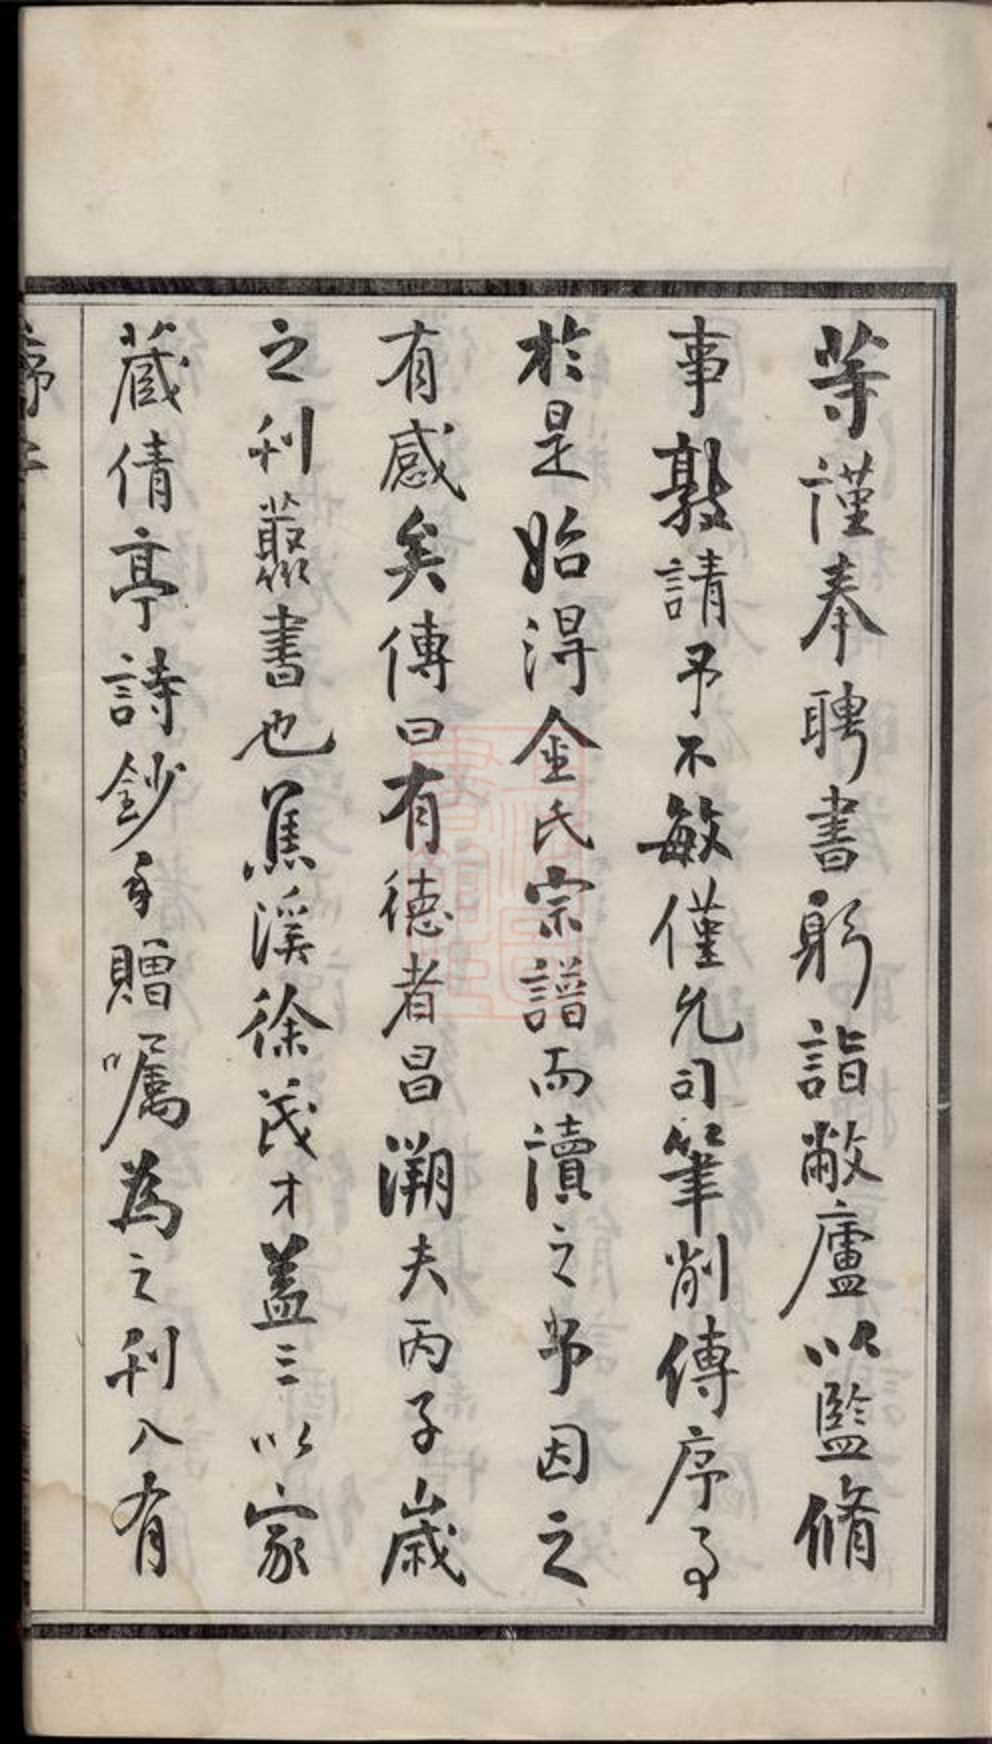 等謹奉聘書躬詣敝廬以監脩
事敦請予不敏僅允司筆削傳序事
於是始得金氏宗譜而讀之予因之
有感矣傳曰有德者昌溯夫丙子歲
之刊叢書也蕉溪徐茂才蓋三以家
藏倩亭詩鈔手贈囑為之刊入有
序